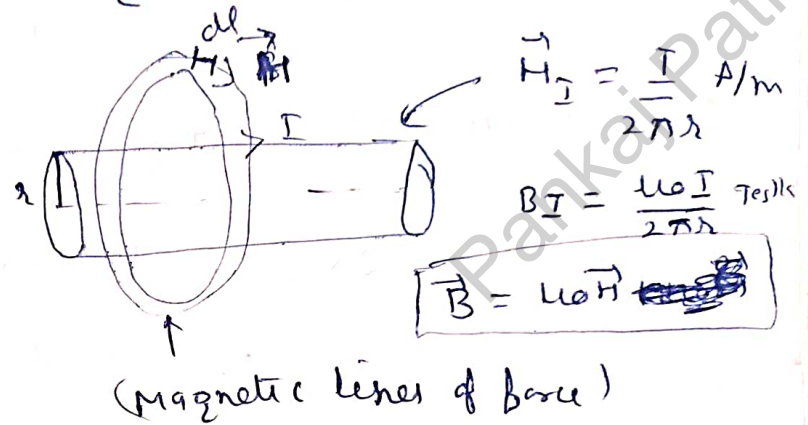 dl
H
I
r
H⃗_I = I / 2πr A/m
B_I = μ₀I / 2πr Tesla
B⃗ = μ₀H⃗
(Magnetic lines of force)
Pankaj Pat